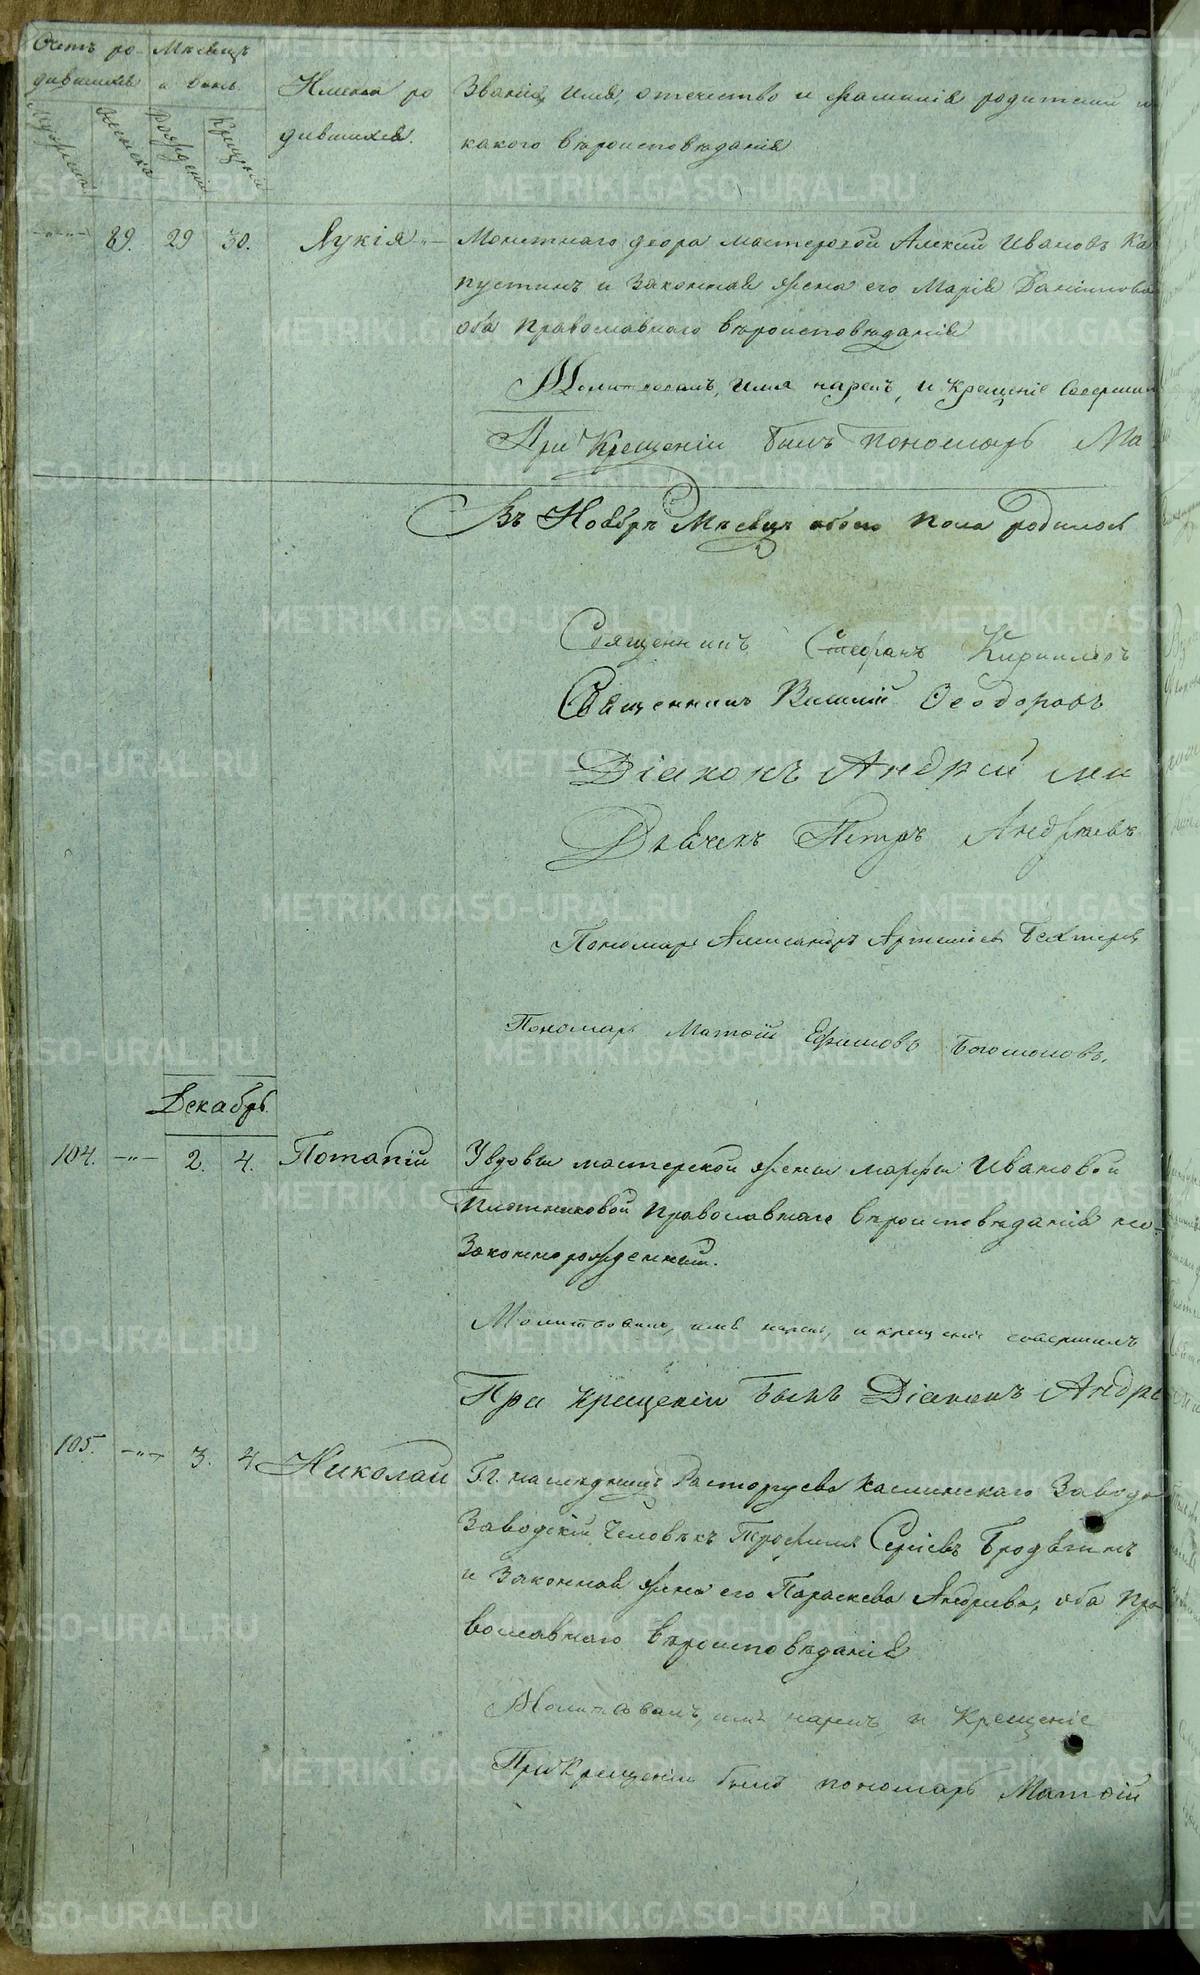 Счетъ ро- Мѣсяцъ
дившихся и День.
Имена ро Званія, имя, отечество и фамилія родителей и
дившихся. какого вѣроисповѣданія
Мужеска Женска Рожденія Крещенія
-"- 89. 29 30. Лукія Монетнаго двора мастеровой Алексий Ивановъ Ка
пустинъ и законная жена его Марія Даніилова
оба православнаго вѣроисповѣданія
Молитвовалъ, имя нарекъ, и крещеніе совершил
При Крещеніи былъ пономарь Ма
Въ Ноябрѣ Мѣсяцѣ обоего пола родилось
Священникъ Стефанъ Кирилловъ
Священникъ Василій Ѳеодоровъ
Діаконъ Андрей
Дьячекъ Петръ Андреевъ
Пономарь Александръ Артемьевъ
Пономарь Матѳій Ефимовъ Богомоловъ.
Декабрь.
104. -"- 2. 4. Потапій У вдовы мастерской жены Марфы Ивановой
Плотниковой православнаго вѣроисповѣданія не-
законнорожденный.
Молитвовалъ, имя нарекъ, и крещеніе совершилъ
При крещеніи былъ Діаконъ Андре
105. -"- 3. 4 Николай Гг. наслѣдницъ Расторгуева Каслинскаго Завода
Заводскій человѣкъ Трофимъ Сергіевъ Бродягинъ
и законная жена его Параскева Андреева, оба пра
вославнаго вѣроисповѣданія
Молитвовалъ, имя нарекъ, и Крещеніе
При Крещеніи былъ пономарь Матѳій
METRIKI.GASO-URAL.RU